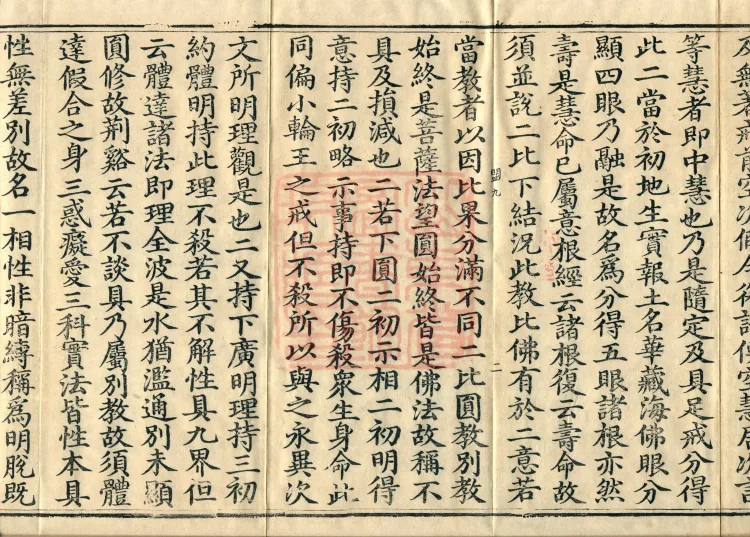 等慧者即中慧也乃是隨定及具足戒分得
此二當於初地生實報土名華藏海佛眼分
顯四眼乃融是故名爲分得五眼諸根亦然
壽是慧命已屬意根經云諸根復云壽命故
須並説二比下結況此教比佛有於二意若
盟九
二
當教者以因比果分滿不同二比圓教別教
始終是菩薩法望圓始終皆是佛法故稱不
具及損減也二若下圓二初示相二初明得
意持二初略示事持即不傷殺衆生身命此
同偏小輪王之戒但不殺所以與之永異次
文所明理觀是也二又持下廣明理持三初
約體明持此理不殺若其不解性具九界但
云體達諸法即理全波是水猶濫通別未顯
圓修故荆谿云若不談具乃屬別教故須體
達假合之身三惑癡愛三科實法皆性本具
性無差別故名一相性非暗縛稱爲明脫既